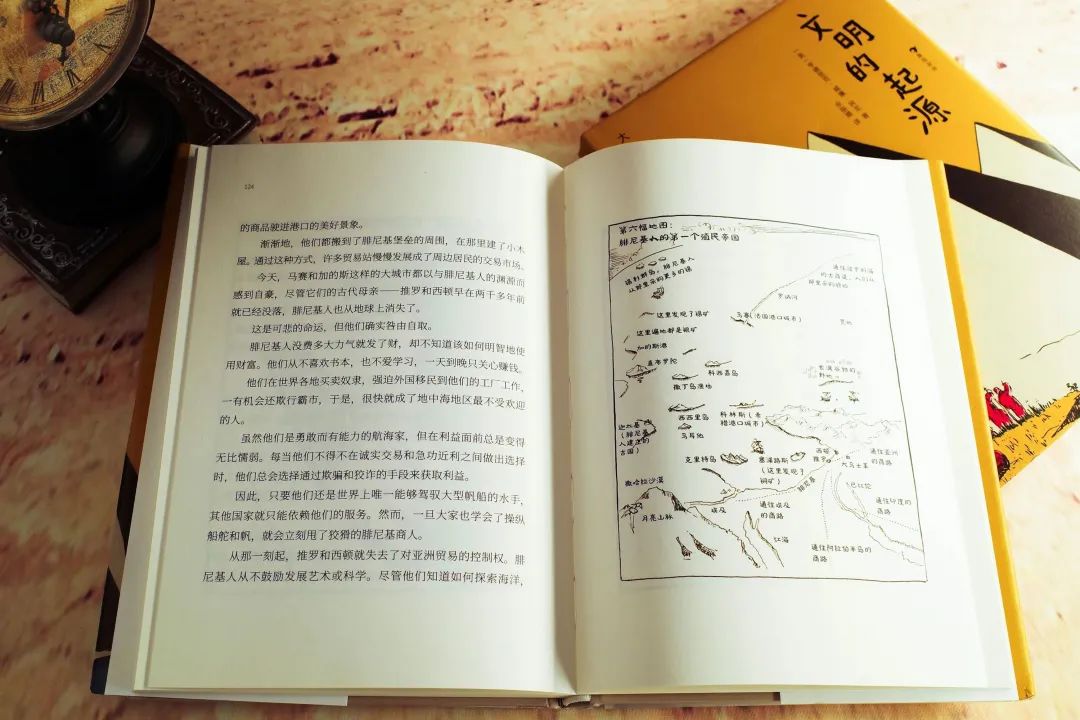 文明的起源
大
124
的商品驶进港口的美好景象。
渐渐地，他们都搬到了腓尼基堡垒的周围，在那里建了小木
屋。通过这种方式，许多贸易站慢慢发展成了周边居民的交易市场。
今天，马赛和加的斯这样的大城市都以与腓尼基人的渊源而
感到自豪，尽管它们的古代母亲——推罗和西顿早在两千多年前
就已经没落，腓尼基人也从地球上消失了。
这是可悲的命运，但他们确实咎由自取。
腓尼基人没费多大力气就发了财，却不知道该如何明智地使
用财富。他们从不喜欢书本，也不爱学习，一天到晚只关心赚钱。
他们在世界各地买卖奴隶，强迫外国移民到他们的工厂工作，
一有机会还欺行霸市，于是，很快就成了地中海地区最不受欢迎
的人。
虽然他们是勇敢而有能力的航海家，但在利益面前总是变得
无比懦弱。每当他们不得不在诚实交易和急功近利之间做出选择
时，他们总会选择通过欺骗和狡诈的手段来获取利益。
因此，只要他们还是世界上唯一能够驾驭大型帆船的水手，
其他国家就只能依赖他们的服务。然而，一旦大家也学会了操纵
船舵和帆，就会立刻甩了狡猾的腓尼基商人。
从那一刻起，推罗和西顿就失去了对亚洲贸易的控制权。腓
尼基人从不鼓励发展艺术或科学。尽管他们知道如何探索海洋，
第六幅地图：
腓尼基人的第一个殖民帝国
锡利群岛，腓尼基人
从那里采购更多的锡
罗讷河
这里发现了锡矿
马赛（法国港口城市）
这里遍地都是银矿
加的斯港
直布罗陀
科西嘉岛
撒丁岛渔场
西西里岛
科林斯（希
腊港口城市）
迦太基
（腓尼基
人建立的
古国）
马耳他
克里特岛
塞浦路斯
（这里发现了
铜矿）
西顿
推罗
大马士革
通往亚洲
的商路
撒哈拉沙漠
月亮山脉
埃及
腓尼基
巴比伦
通往埃及
的商路
通往印度的
商路
红海
通往阿拉伯半岛的
商路